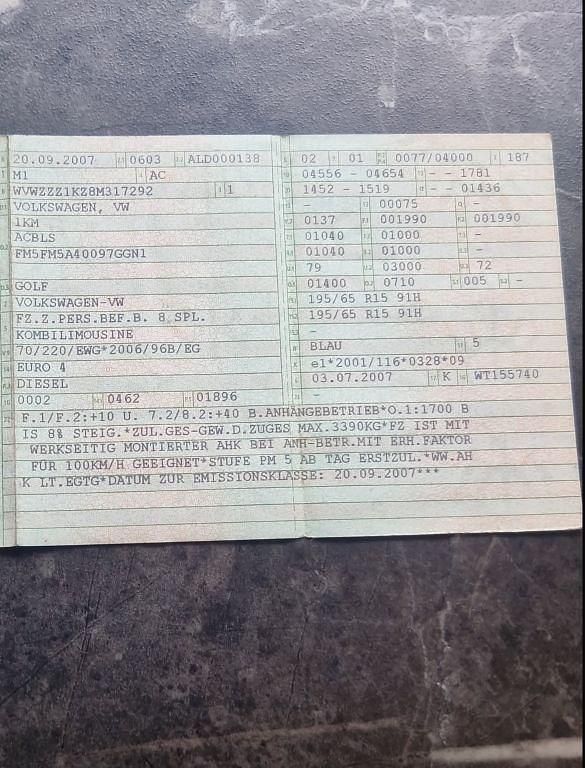 20.09.2007 0603 ALD000138
M1 AC
WVWZZZ1KZ8M317292 1
VOLKSWAGEN, VW
1KM
ACBLS
FM5FM5A40097GGN1
GOLF
VOLKSWAGEN-VW
FZ.Z.PERS.BEF.B. 8 SPL.
KOMBILIMOUSINE
70/220/EWG*2006/96B/EG
EURO 4
DIESEL
0002 0462 01896
02 01 0077/04000 187
04556 - 04654 - - 1781
1452 - 1519 - - 01436
- 00075 -
0137 001990 001990
01040 01000 -
01040 01000 -
79 03000 72
01400 0710 005 -
195/65 R15 91H
195/65 R15 91H
-
BLAU 5
e1*2001/116*0328*09
03.07.2007 K WT155740
-
F.1/F.2:+10 U. 7.2/8.2:+40 B.ANHÄNGEBETRIEB*O.1:1700 B
IS 8% STEIG.*ZUL.GES-GEW.D.ZUGES MAX.3390KG*FZ IST MIT
WERKSEITIG MONTIERTER AHK BEI ANH-BETR.MIT ERH.FAKTOR
FÜR 100KM/H GEEIGNET*STUFE PM 5 AB TAG ERSTZUL.*WW.AH
K LT.EGTG*DATUM ZUR EMISSIONSKLASSE: 20.09.2007***